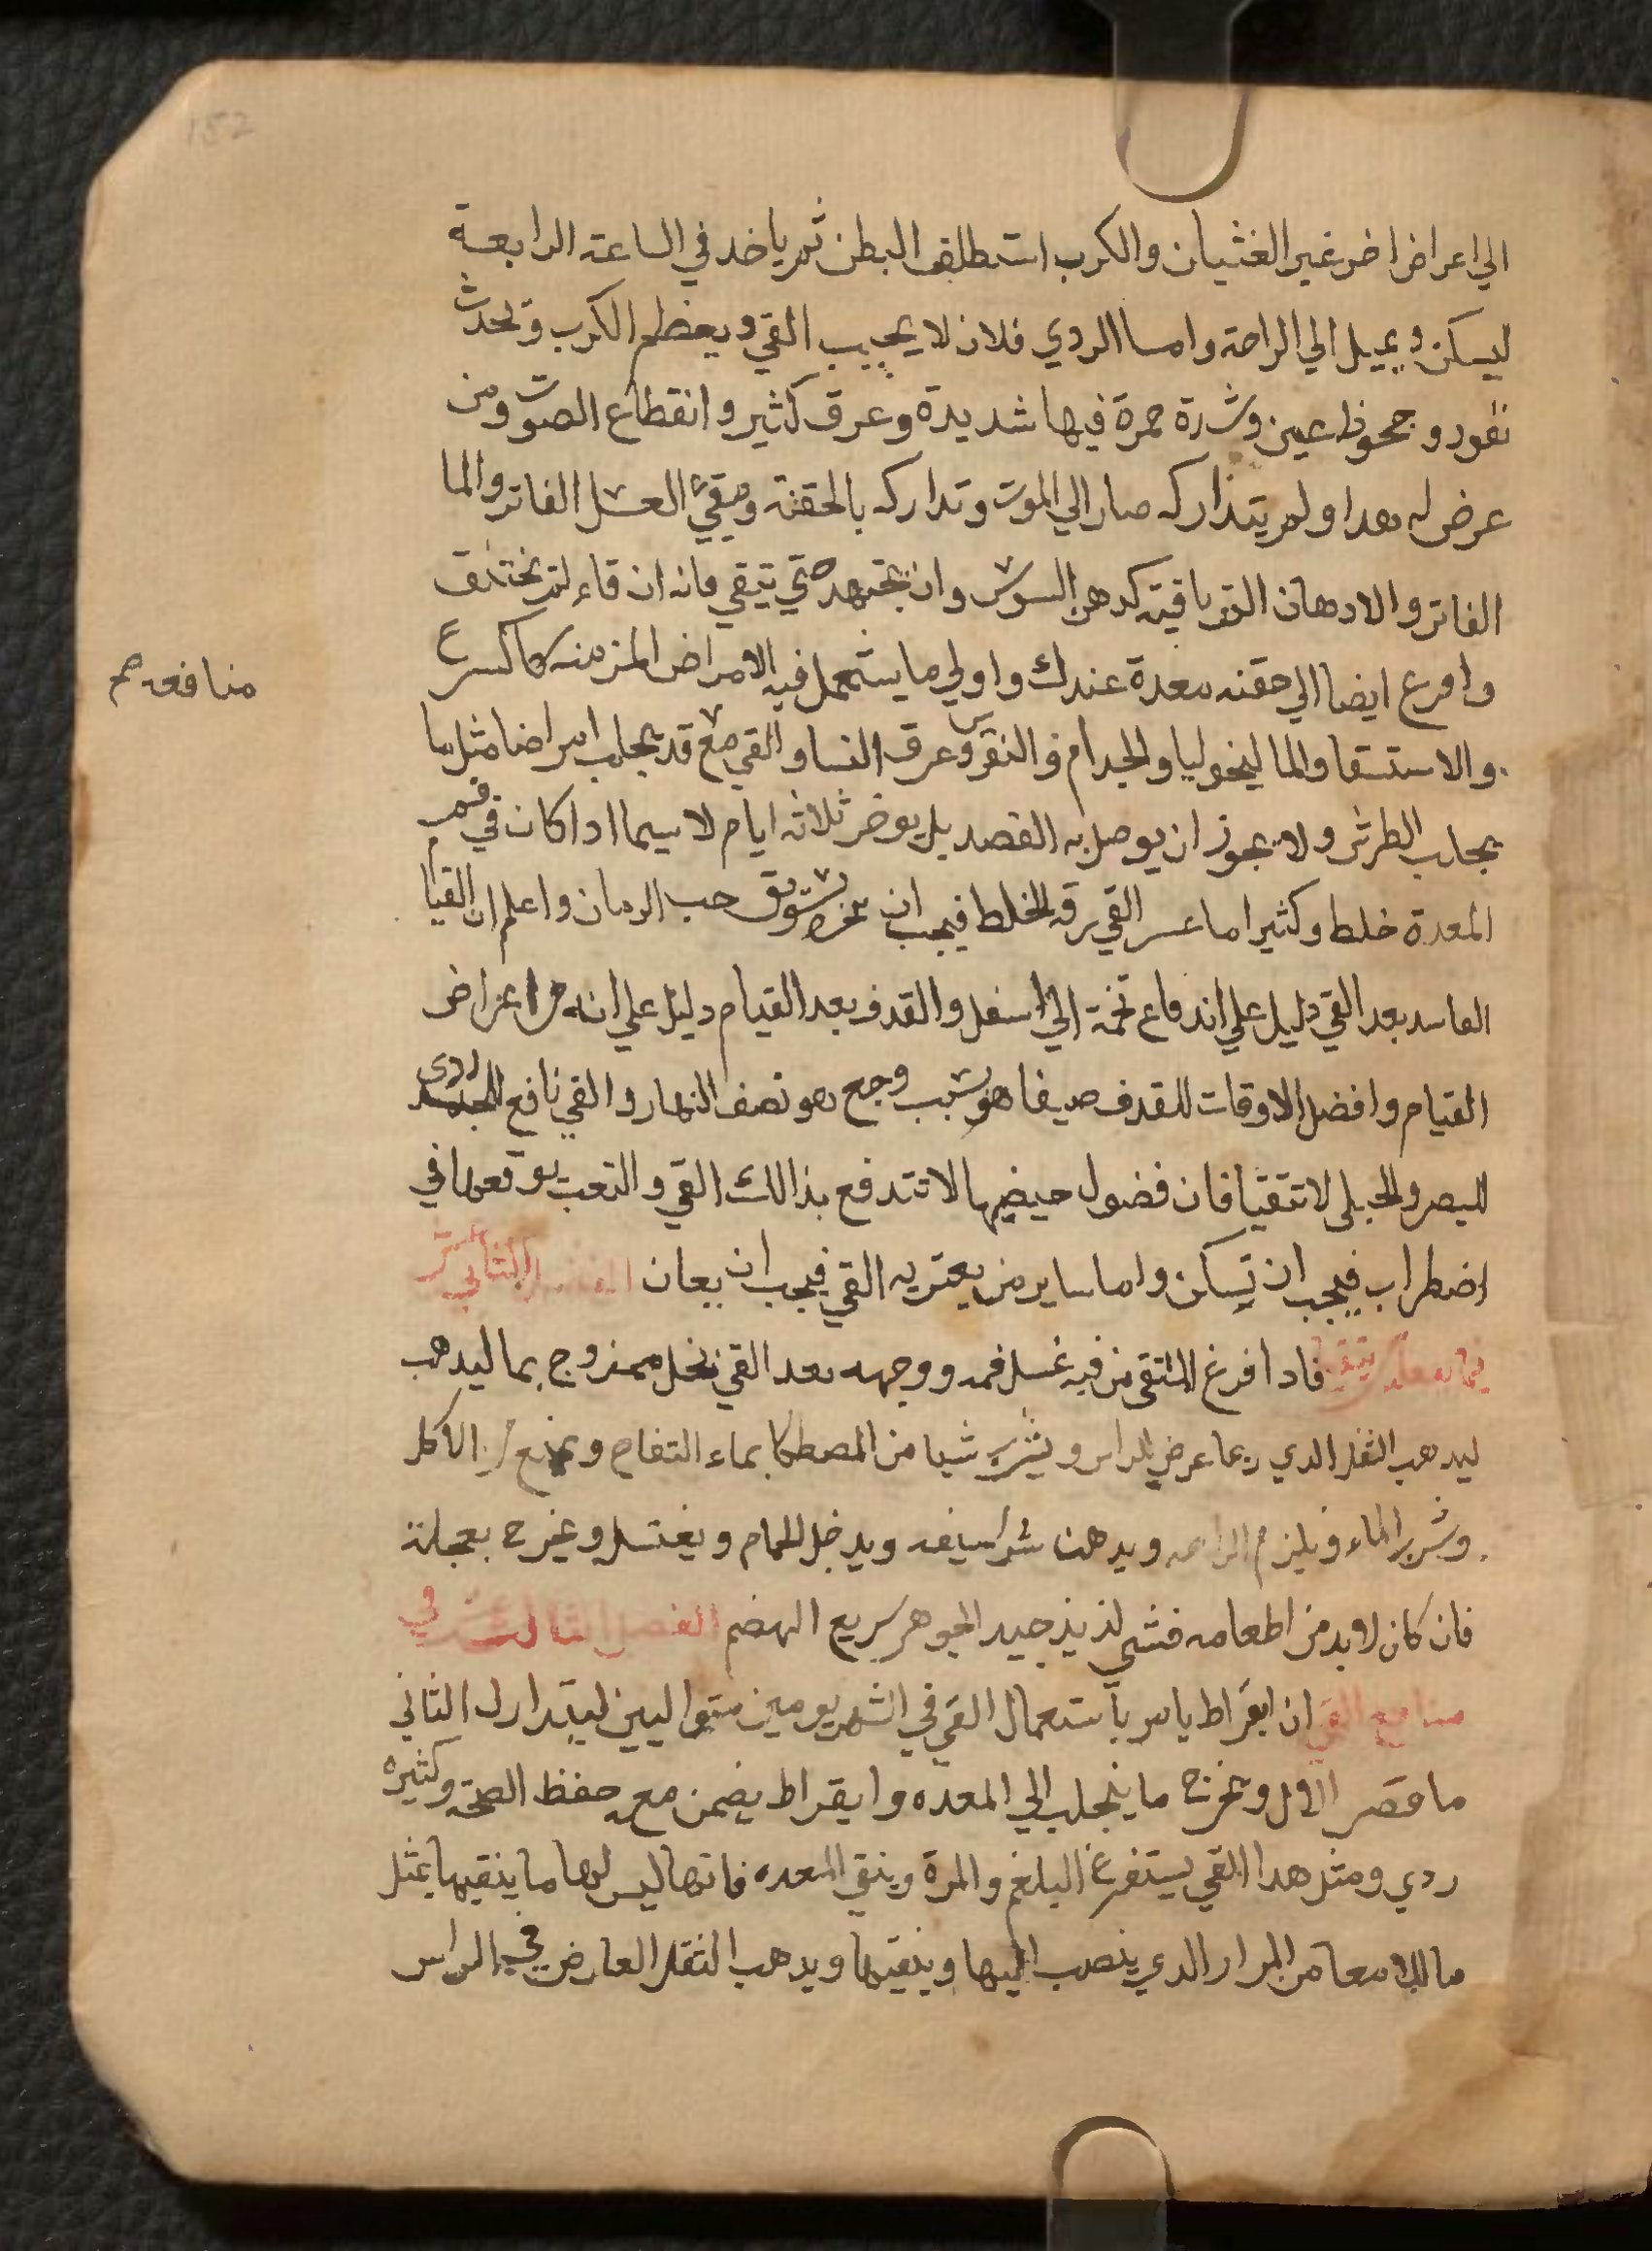 الي اعراض اخر غير الغثيان والكرب استطلق البطن ثم ياخد في الساعة الرابعة
ليسكن ويميل الي الراحة واما الردي فلان لا يجيب القي ويعظم الكرب وتحدث
نفود وجحوظ عين وشدة حمرة فيها شديدة وعرق كثير وانقطاع الصوت ومن
عرض له هدا ولم يتداركه صار الي الموت وتداركه بالحقنة وسقي العسل الفاتر والما
الفاتر والادهان الترياقية كدهن السوسن وان يجتهد حتي يتقي فانه ان قاء لم يختنق
وافرع ايضا الي حقنه معدة عندك واولي ما يستعمل فيه الامراض المزمنه كالسرع
منافعه
والاستسقا والماليخوليا والجدام والنقرس وعرق النسا والقي مع قد يجلب امراضا مثل ما
يجلب الطرش ولا يجوز ان يوصل به الفصد بل يوخر ثلاثه ايام لا سيما ادا كان في فم
المعدة خلط وكثيرا ما عسر القي رقه الخلط فيجب ان بسويق حب الرمان واعلم ان القيام
الفاسد بعد القي دليل علي اندفاع تخمة الي اسفل والقدف بعد القيام دليل علي انه من اعراض
القيام وافضل الاوقات للقدف صيفا هو بسبب وجع هو نصف النهار والقي نافع للجسد ردي
للبصر والحبلى لا تتقيا فان فضول حيضها لا تندفع بذالك القي والتعب يوقعها في
اضطراب فيجب ان تسكن واما ساير من يعتريه القي فيجب ان يعان الفصل الثاني
فيما يفعله فادا افرغ المتقي من فيه غسل فمه ووجهه بعد القي بخل ممزوج بما ليدهب
ليدهب الثقل الدي ربما عرض للراس ويشرب شيا من المصطكا بماء التفاح ويمنع من الاكل
وشرب الماء ويلزم الراحه ويدهن شراسيفه ويدخل الحمام ويغتسل ويخرج بعجلة
فان كان لا بد من اطعامه فشي لذيذ جيد الجوهر سريع الهضم الفصل الثالث في
منافع القي ان ابقراط يامر باستعمال القي في الشهر يومين متواليين ليتدارك الثاني
ما قصر الاول ويخرج ما ينجلب الي المعده وابقراط يضمن معه حفظ الصحة وكثيره
ردي ومثل هدا القي يستفرغ البلغم والمرة وينقي المعده فانها ليس لها ما ينقيها مثل
ما للامعا من المرار الدي ينصب اليها وينقيها ويدهب الثقل العارض في الراس